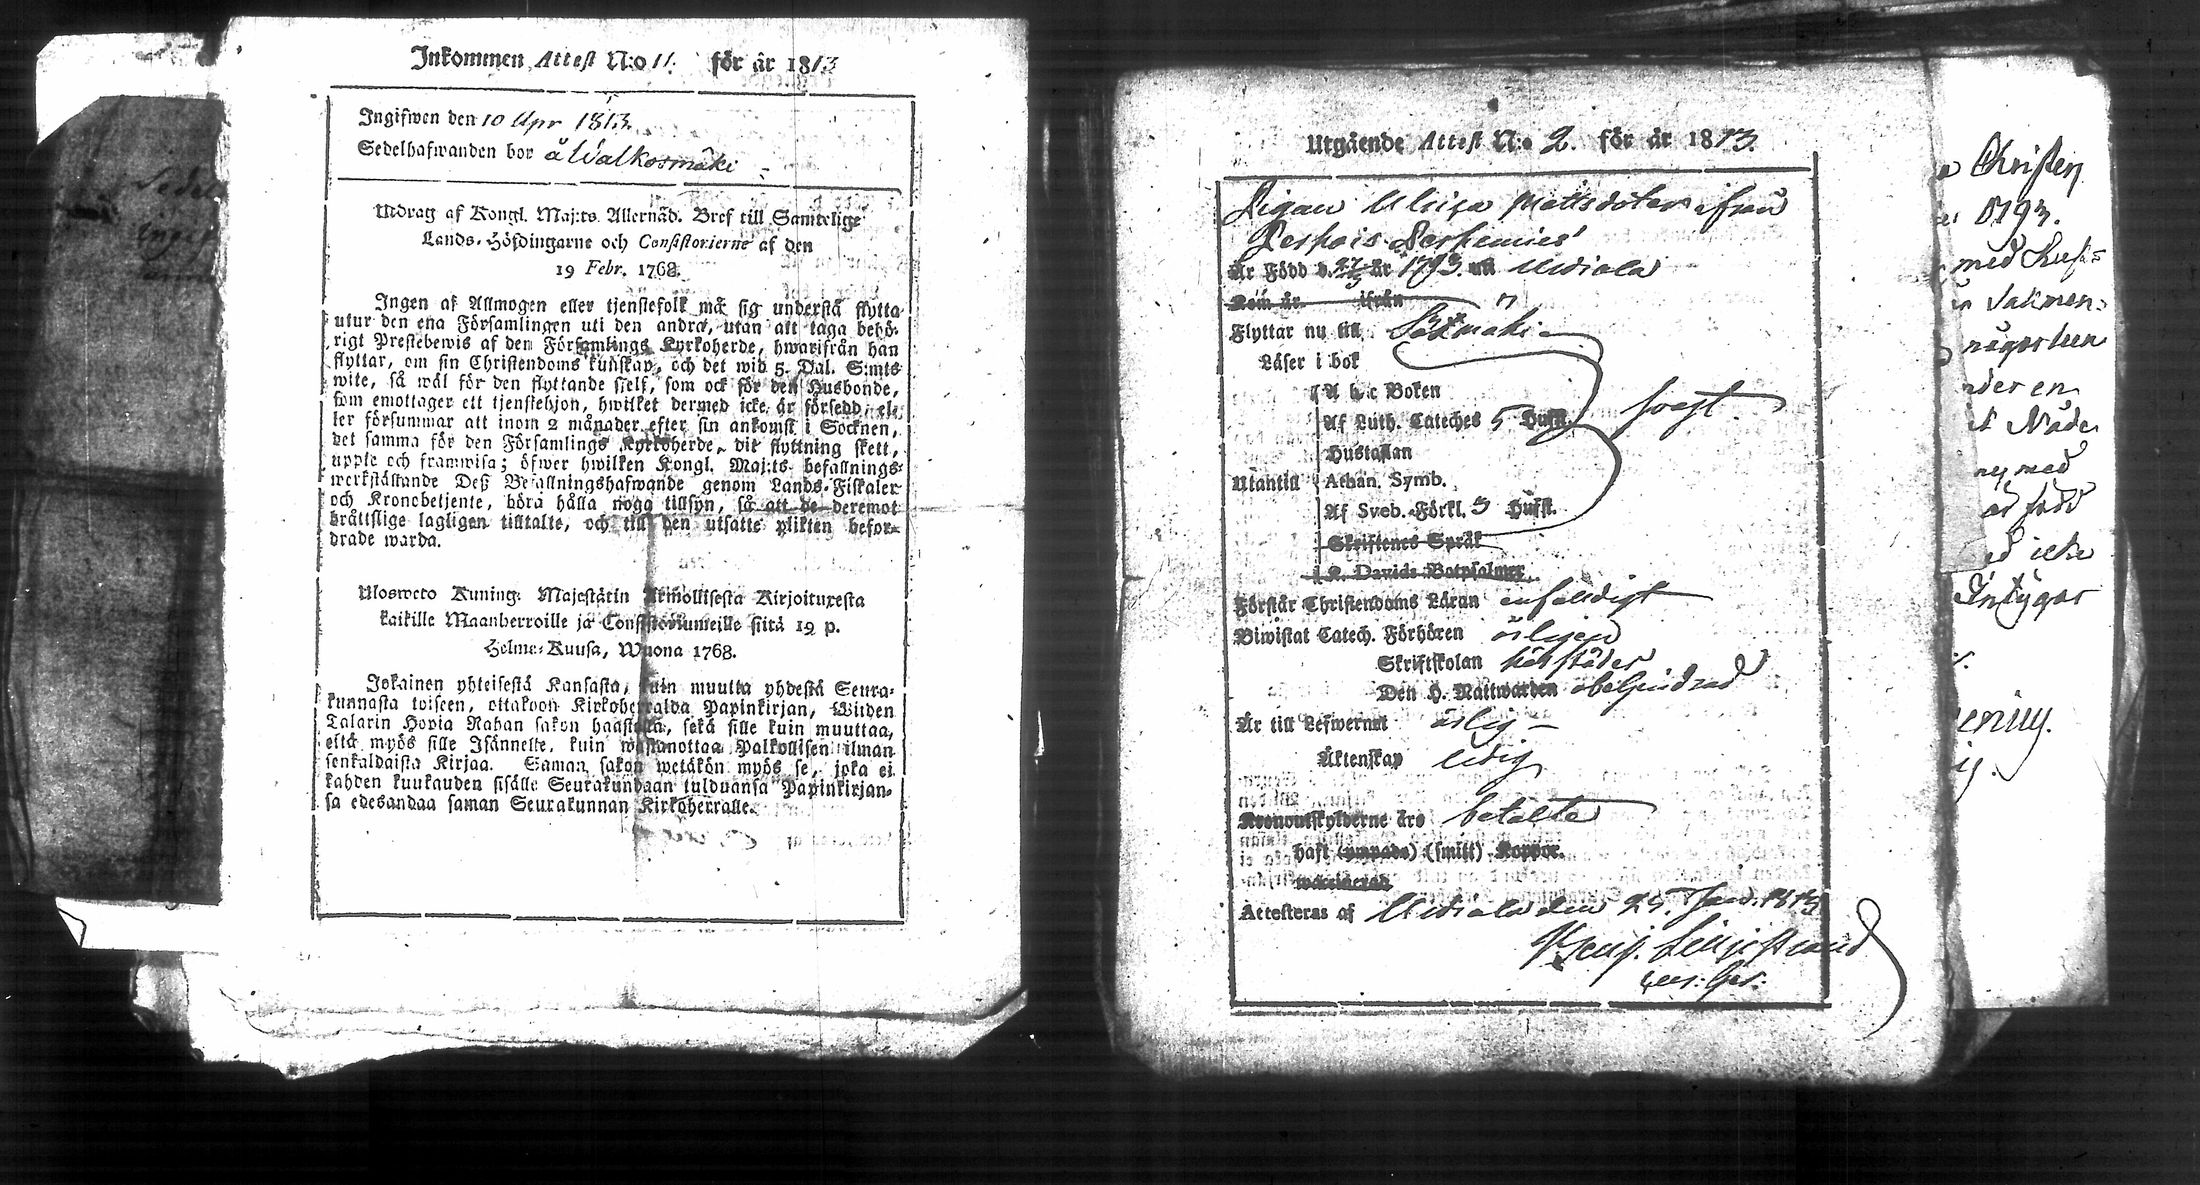 Inkommen Attest N:o 11. för år 1813
Ingifwen den 10 Apr 1813.
Sedelhafwanden bor å Walkosmäki
Utdrag af Kongl. Maj:ts Allernåd. Bref till Samtelige
Lands-Höfdingarne och Consistorierne af den
19 Febr. 1768.
Ingen af Allmogen eller tjenstefolk må sig understå flytta
utur den ena Församlingen uti den andra, utan att taga behö-
rigt Prestebewis af den Församlings Kyrkoherde, hwarifrån han
flyttar, om sin Christendoms kunskap, och det wid 5. Dal. S:mts
wite, så wäl för den flyttande sielf, som ock för den Husbonde,
som emottager ett tjenstehjon, hwilket dermed icke är försedd, el-
ler försummar att inom 2 månader efter sin ankomst i Socknen,
det samma för den Församlings Kyrkoherde, dit flyttning skett,
upple och framwisa; öfwer hwilken Kongl. Maj:ts befallnings-
werkställande Deß Befallningshafwande genom Lands-Fiskaler
och Kronobetjente, böra hålla noga tillsyn, så att de deremot
bråttslige lagligen tilltalte, och till den utsatte plikten befor-
drade warda.
Ulosweto Kuning: Majestätin Armollisesta Kirjoituxesta
kaikille Maanherroille ja Consistoriumeille siitä 19 p.
Helme-Kuusa, Wuona 1768.
Jokainen yhteisestä Kansasta, kuin muutta yhdestä Seura-
kunnasta toiseen, ottakoon Kirkoherralda Papinkirjan, Wiiden
Talarin Hopia Rahan sakon haastolla, sekä sille kuin muuttaa,
että myös sille Isännelle, kuin wastanottaa Palkollisen ilman
senkaldaista Kirjaa. Saman sakon wetäkön myös se, joka ei
kahden kuukauden sisälle Seurakundaan tulduansa Papinkirjan-
sa edesandaa saman Seurakunnan Kirkoherralle.
Utgående Attest N:o 2. för år 1813.
Pigan Ulrica Mattsdoter ifrån
Är Född d. 27/3 år 1793. uti Urdiala
Kom år ifrån
Flyttar nu till Sääxmäki
Läser i bok
A b c Boken
Af Luth. Cateches 5 Hufst. svagt.
Hustaflan
Utantill Athan. Symb.
Af Sveb. Förkl. 3 Hufst.
Skriftenes Språk
K. Davids Botpsalmer
Förstår Christendoms Läran enfaldigt
Biwistat Catech. Förhören årligen
Skriftskolan härstädes
Den H. Nattwarden obehindrad
Är till Lefwernet ärlig
Äktenskap ledig
Kronoutskylderne äro betalte
haft (ympade) (smitt) Koppor.
waccinerad
Attesteras af Urdiala den 25. Jan. 1813
Christen
1793.
med
någorlun
der en
Nåde
med
född
icke
Intygar